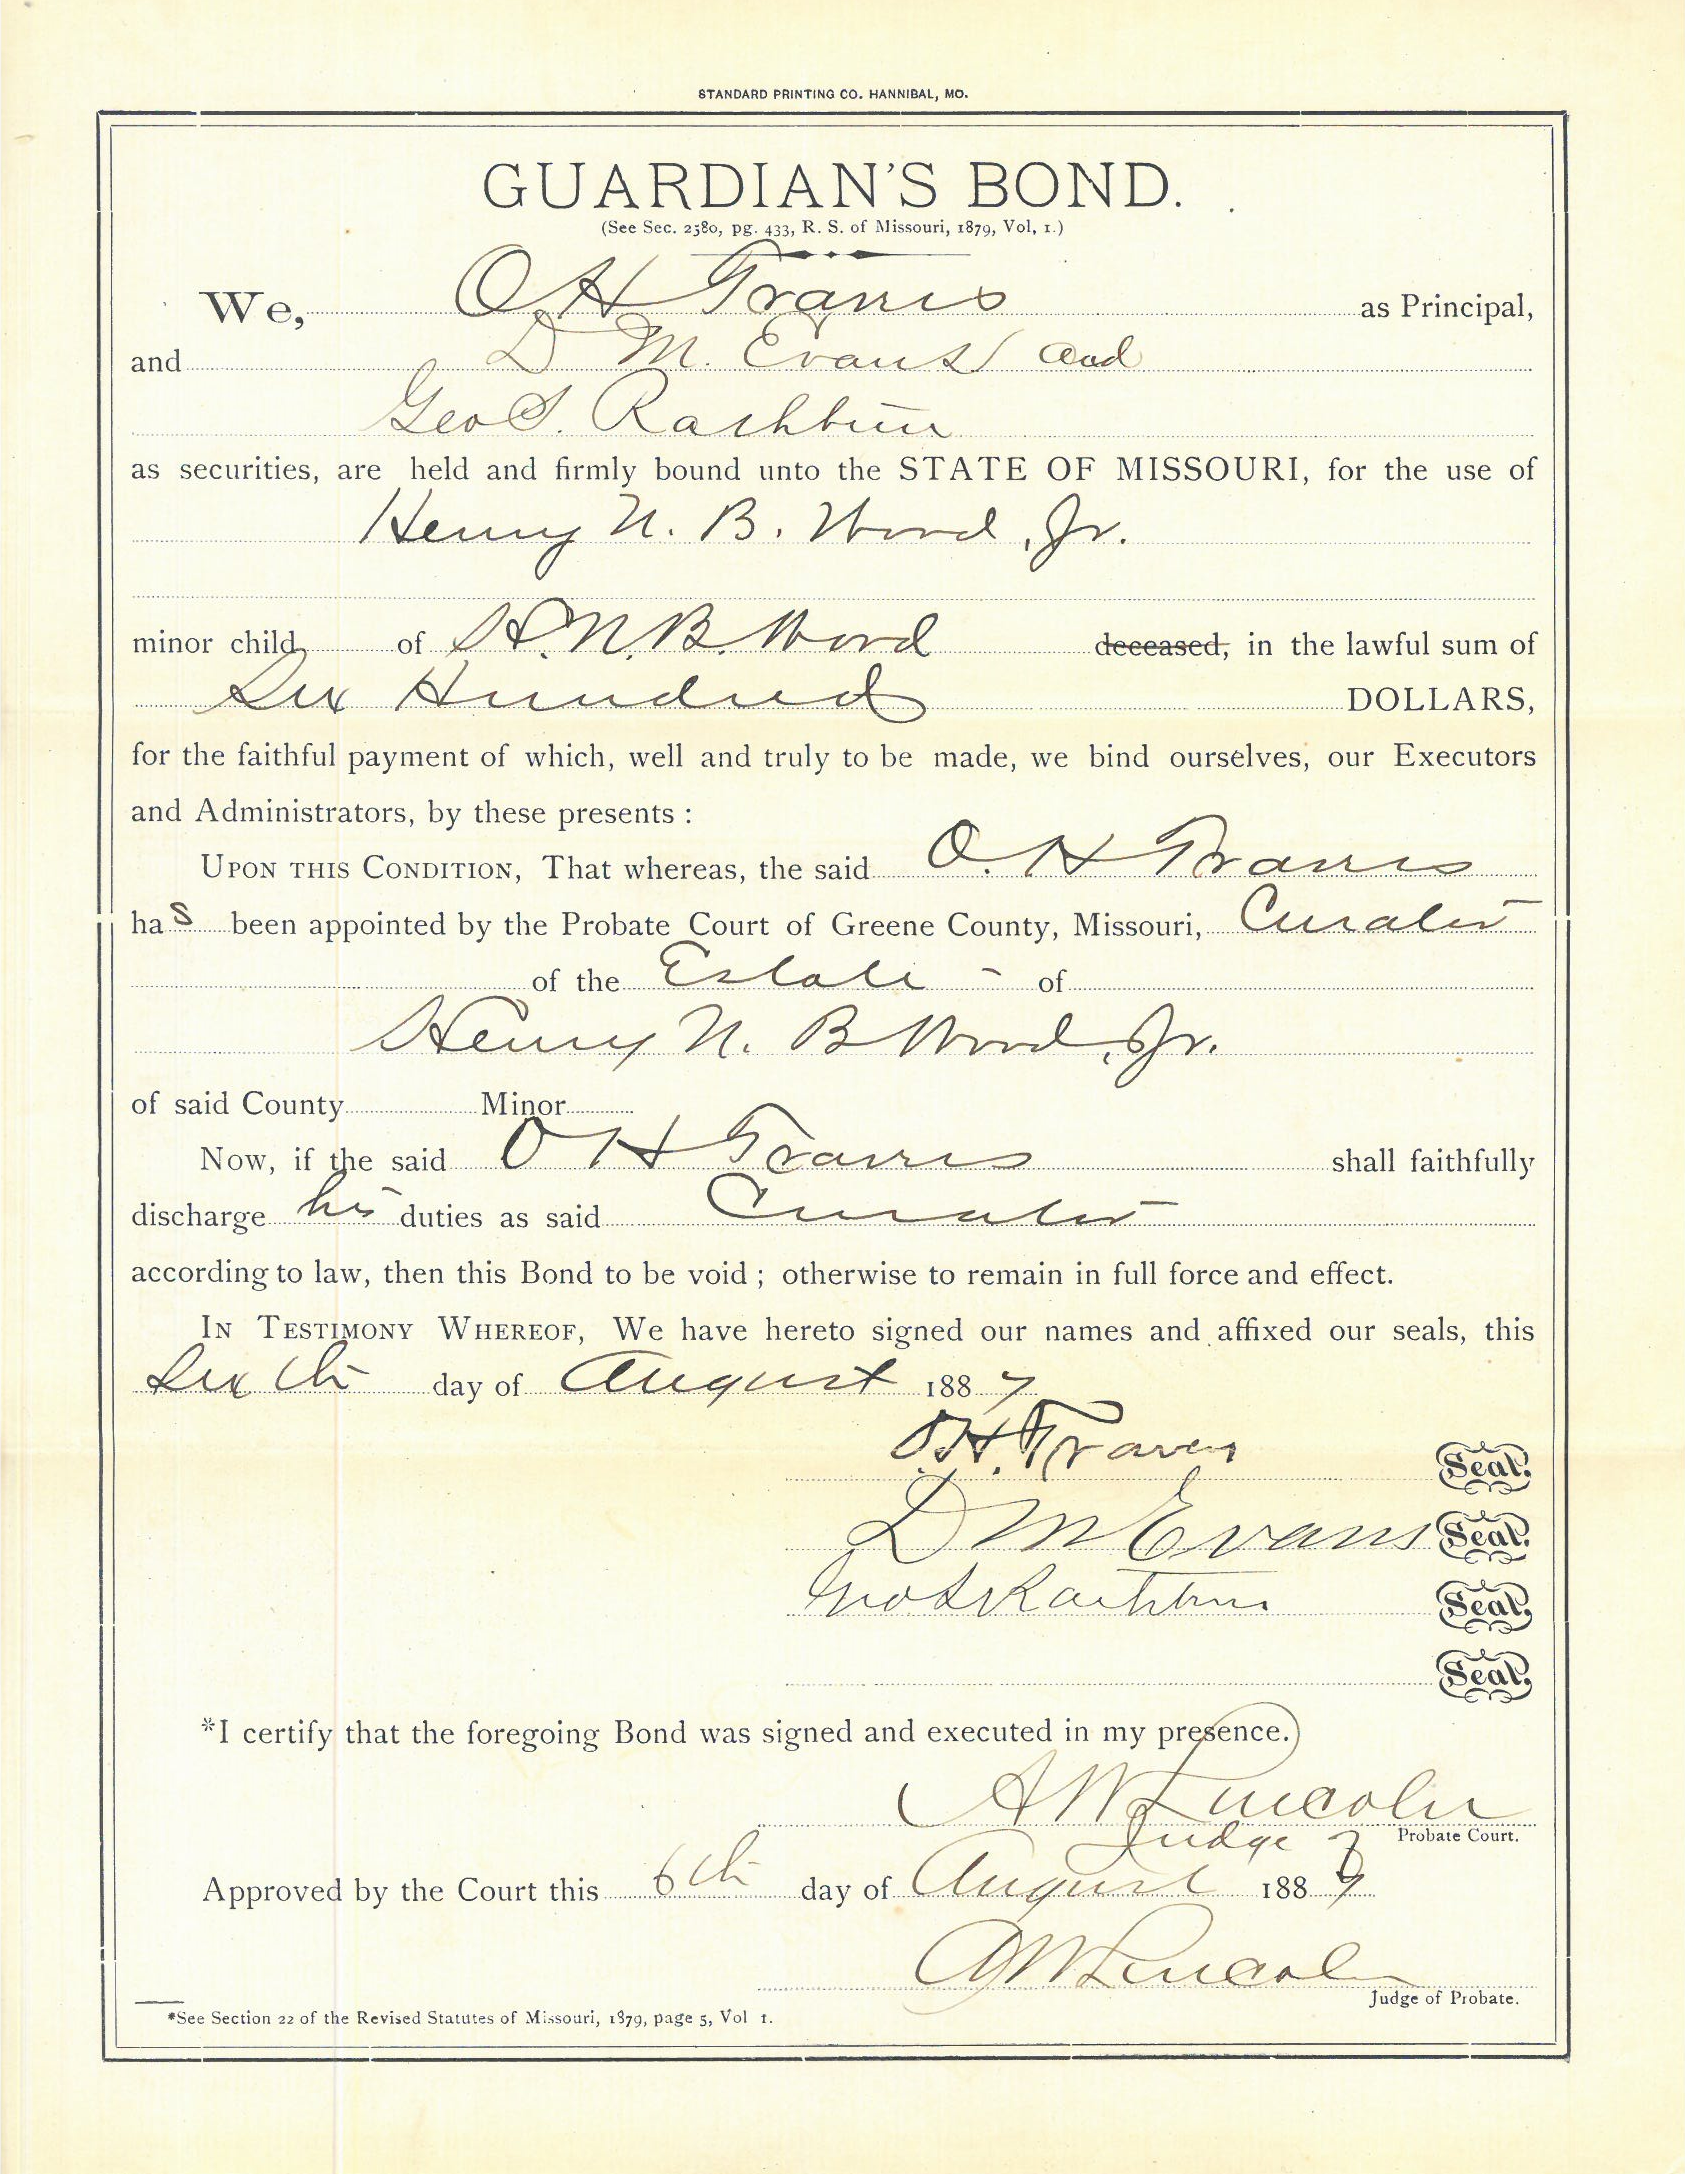 STANDARD PRINTING CO. HANNIBAL, MO.
GUARDIAN'S BOND.
(See Sec. 2580, pg. 433, R. S. of Missouri, 1879, Vol, 1.)
We, O H Travis as Principal,
and D M. Evans and
Geo S. Rathbun
as securities, are held and firmly bound unto the STATE OF MISSOURI, for the use of
Henry N. B. Wood, Jr.
minor child of H. N. B. Wood deceased, in the lawful sum of
Six Hundred DOLLARS,
for the faithful payment of which, well and truly to be made, we bind ourselves, our Executors
and Administrators, by these presents :
UPON THIS CONDITION, That whereas, the said O. H Travis
has been appointed by the Probate Court of Greene County, Missouri, Curator
of the Estate - of
Henry N. B Wood, Jr.
of said County Minor
Now, if the said O H Travis shall faithfully
discharge his duties as said Curator
according to law, then this Bond to be void ; otherwise to remain in full force and effect.
IN TESTIMONY WHEREOF, We have hereto signed our names and affixed our seals, this
Sixth day of August 1887
O. H. Travis Seal.
D M Evans Seal.
Geo S Rathbun Seal.
Seal.
*I certify that the foregoing Bond was signed and executed in my presence.
A W Lincoln
Judge of Probate Court.
Approved by the Court this 6th day of August 1887
A W Lincoln
Judge of Probate.
*See Section 22 of the Revised Statutes of Missouri, 1879, page 5, Vol 1.